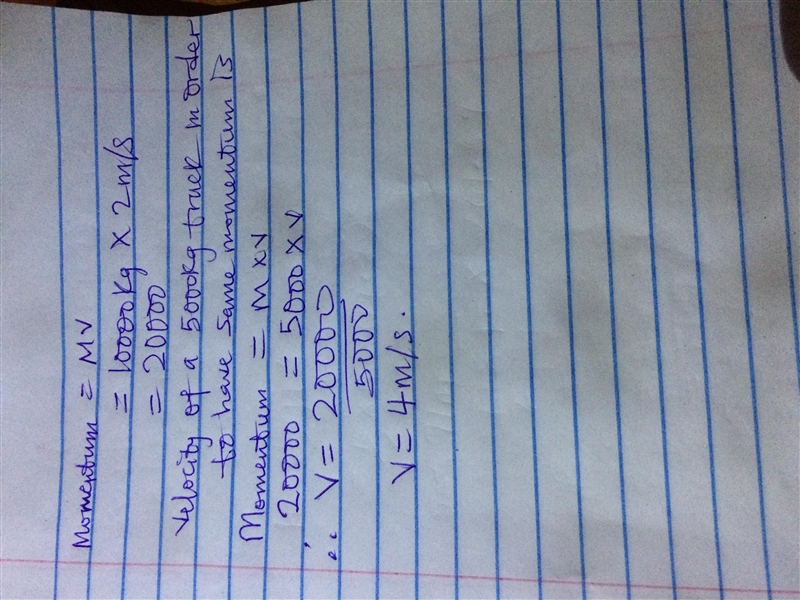 Momentum = MV
= 10000kg × 2m/s
= 20000
Velocity of a 5000kg truck in order
to have same momentum is
Momentum = M×V
20000 = 5000×V
∴ V = 20000
5000
V = 4m/s.